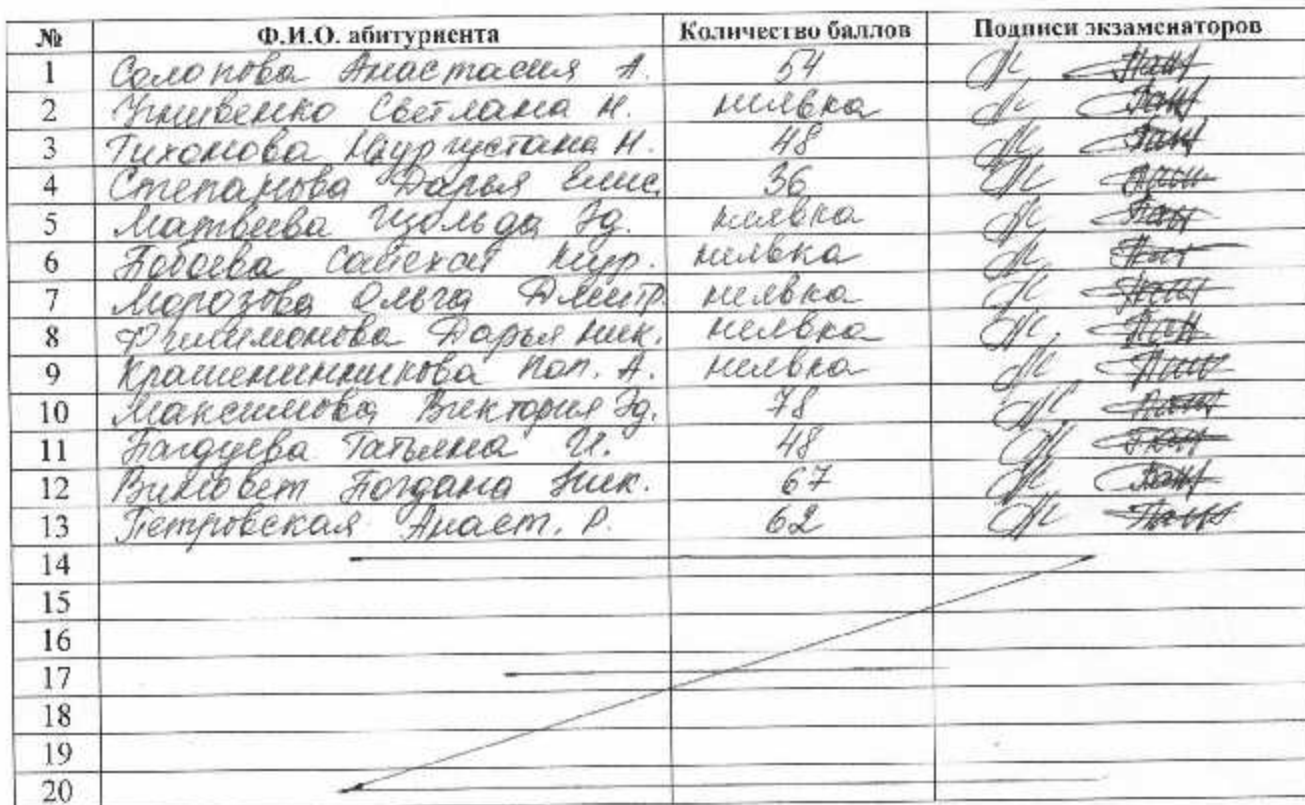 № Ф.И.О. абитуриента Количество баллов Подписи экзаменаторов
1 Солопова Анастасия А. 54
2 Светлана Н. неявка
3 Тихонова Нюргустана Н. 48
4 Степанова Дарья Елис. 36
5 Матвеева Изольда Эд. неявка
6 Нур. неявка
7 Морозова Ольга Дмитр. неявка
8 Филимонова Дарья Ник. неявка
9 Крашенинникова Пол. А. неявка
10 Максимова Виктория Эд. 78
11 Багдуева Татьяна И. 48
12 Богдана Ник. 67
13 Петровская Анаст. Р. 62
14
15
16
17
18
19
20